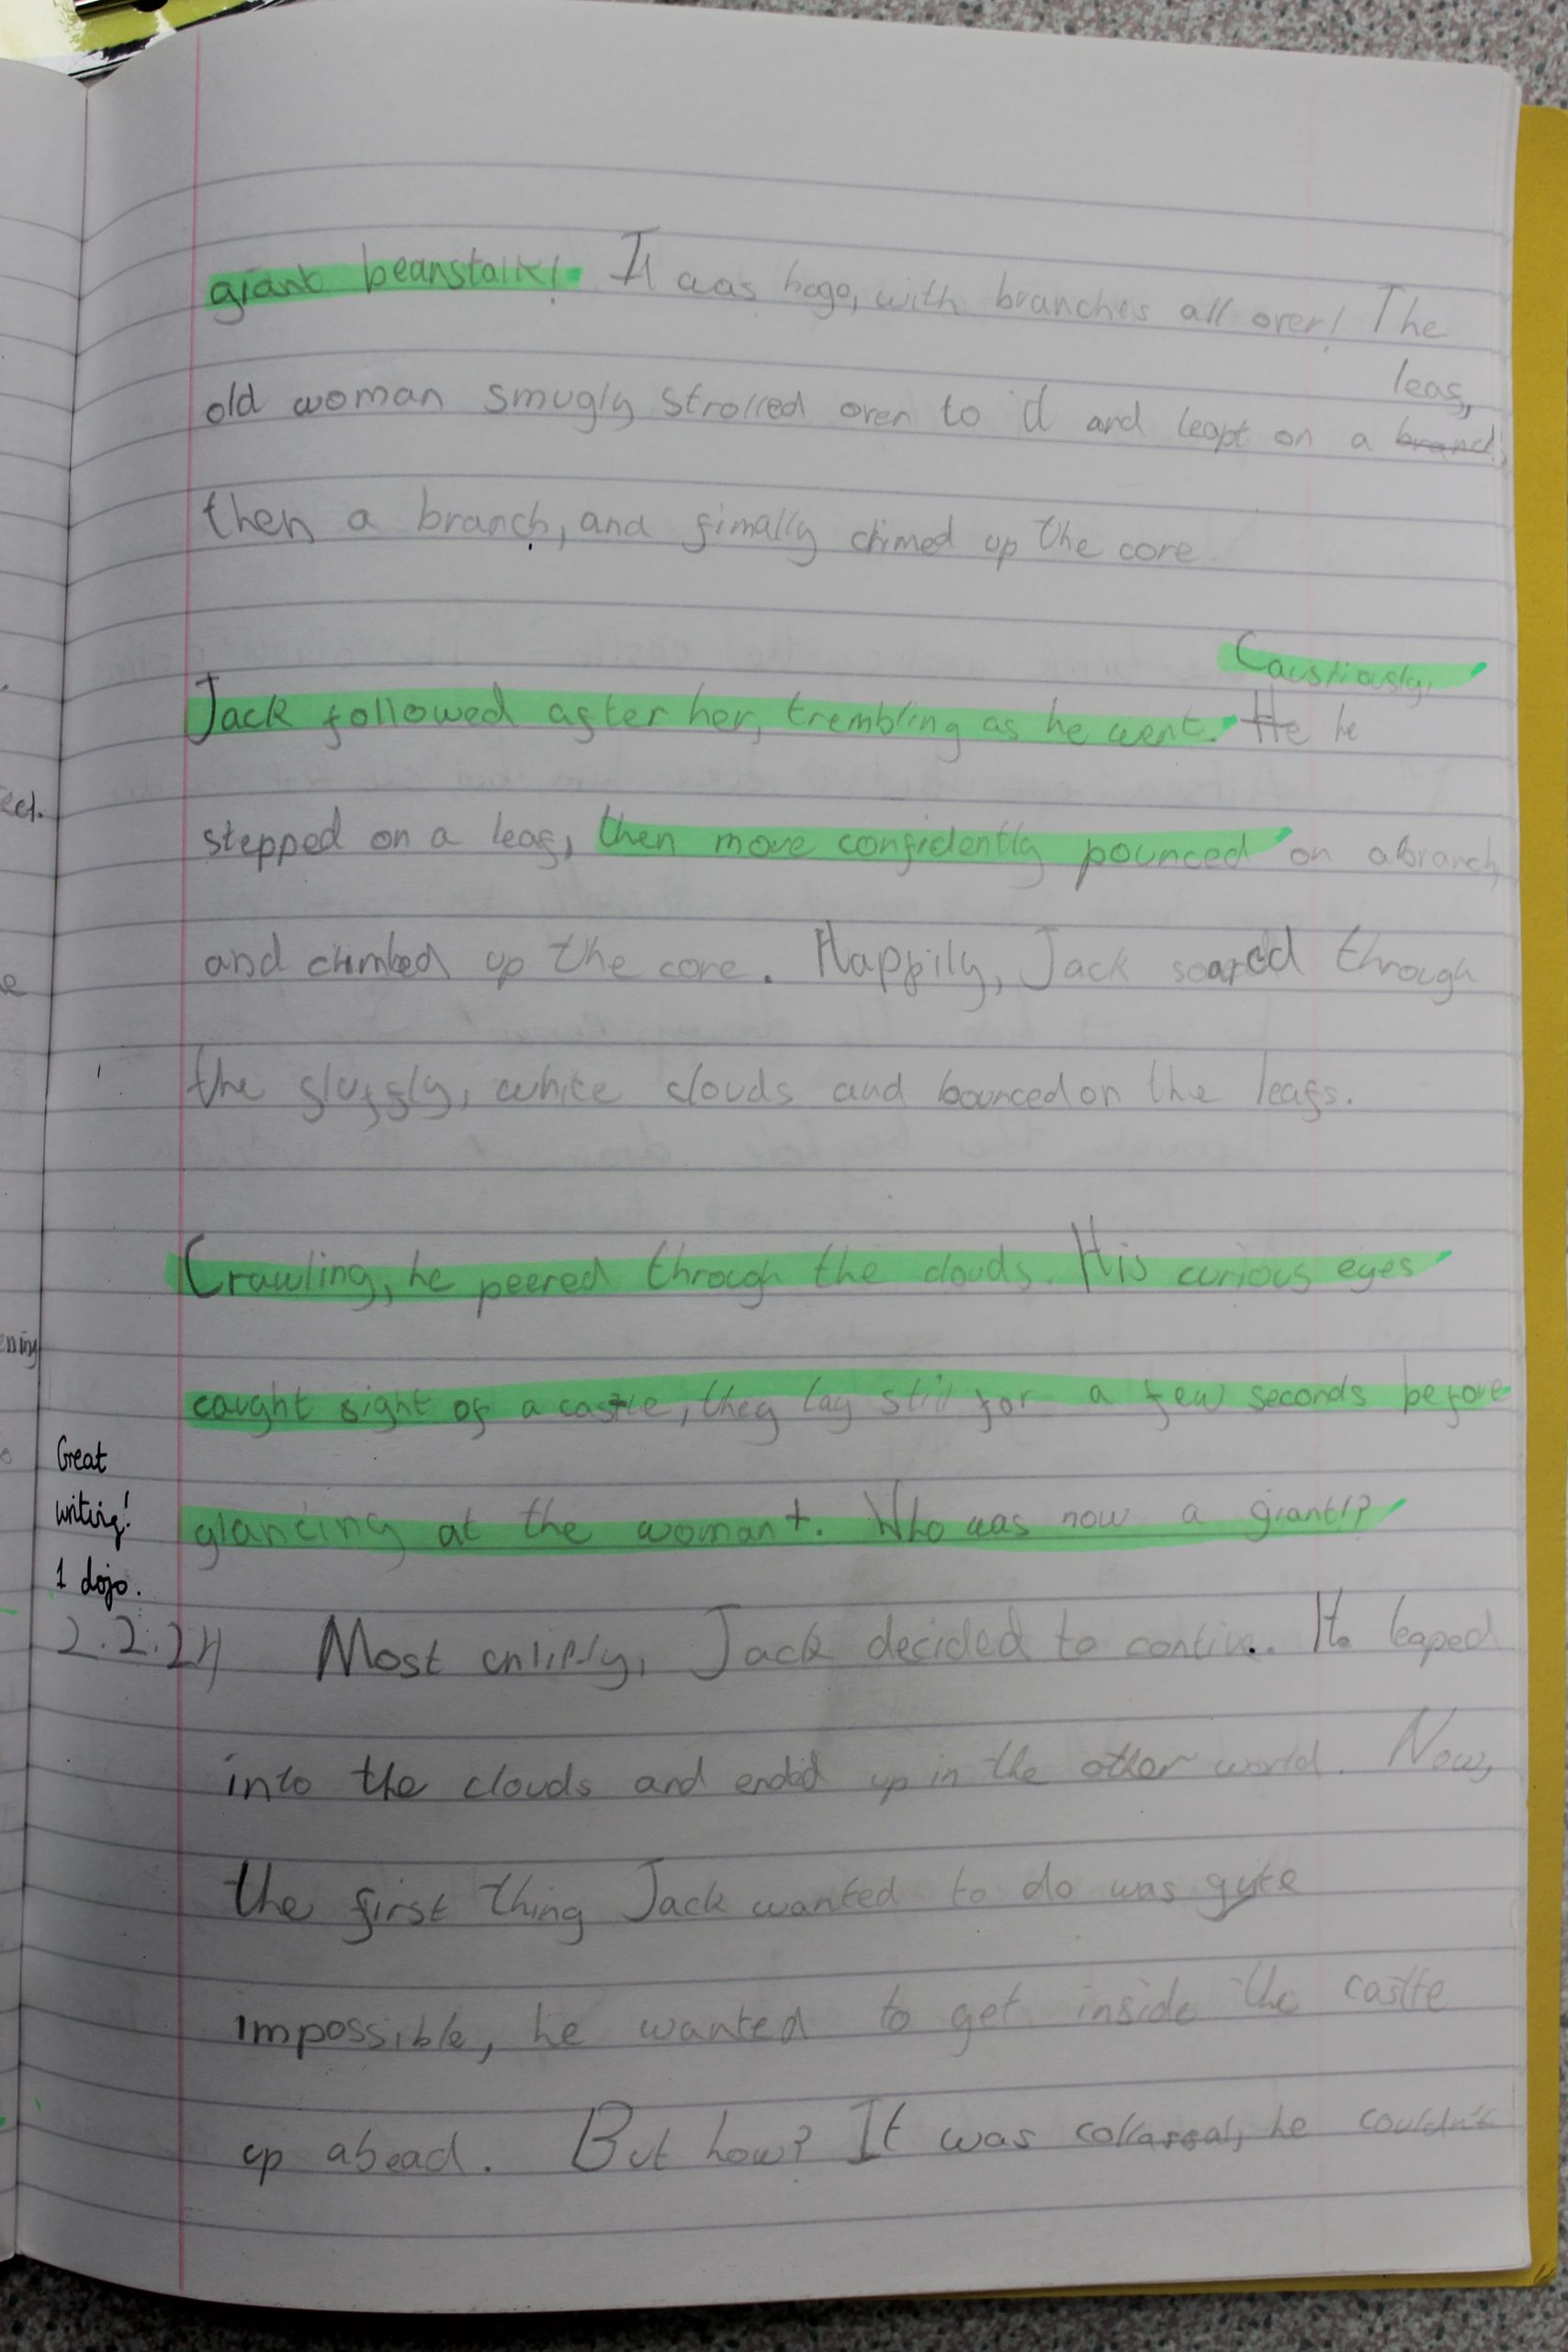 giant beanstalk! It was hoge, with branches all over! The
leaf,
old woman smugly strolled over to it and leapt on a branch,
then a branch, and finally climed up the core.
Caustiously,
Jack followed after her, trembling as he went. He he
stepped on a leaf, then more confidently pounced on a branch,
and climbed up the core. Happily, Jack soared through
the fluffly, white clouds and bounced on the leafs.
Crawling, he peered through the clouds. His curious eyes
caught sight of a castle, they lay still for a few seconds before
glancing at the woman+. Who was now a giant!?
Great
writing!
1 dojo.
2.2.24 Most Jack decided to He leaped
into the clouds and ended up in the other world. Now,
the first thing Jack wanted to do was quite
impossible, he wanted to get inside the castle
up ahead. But how? It was collassal, he couldn't